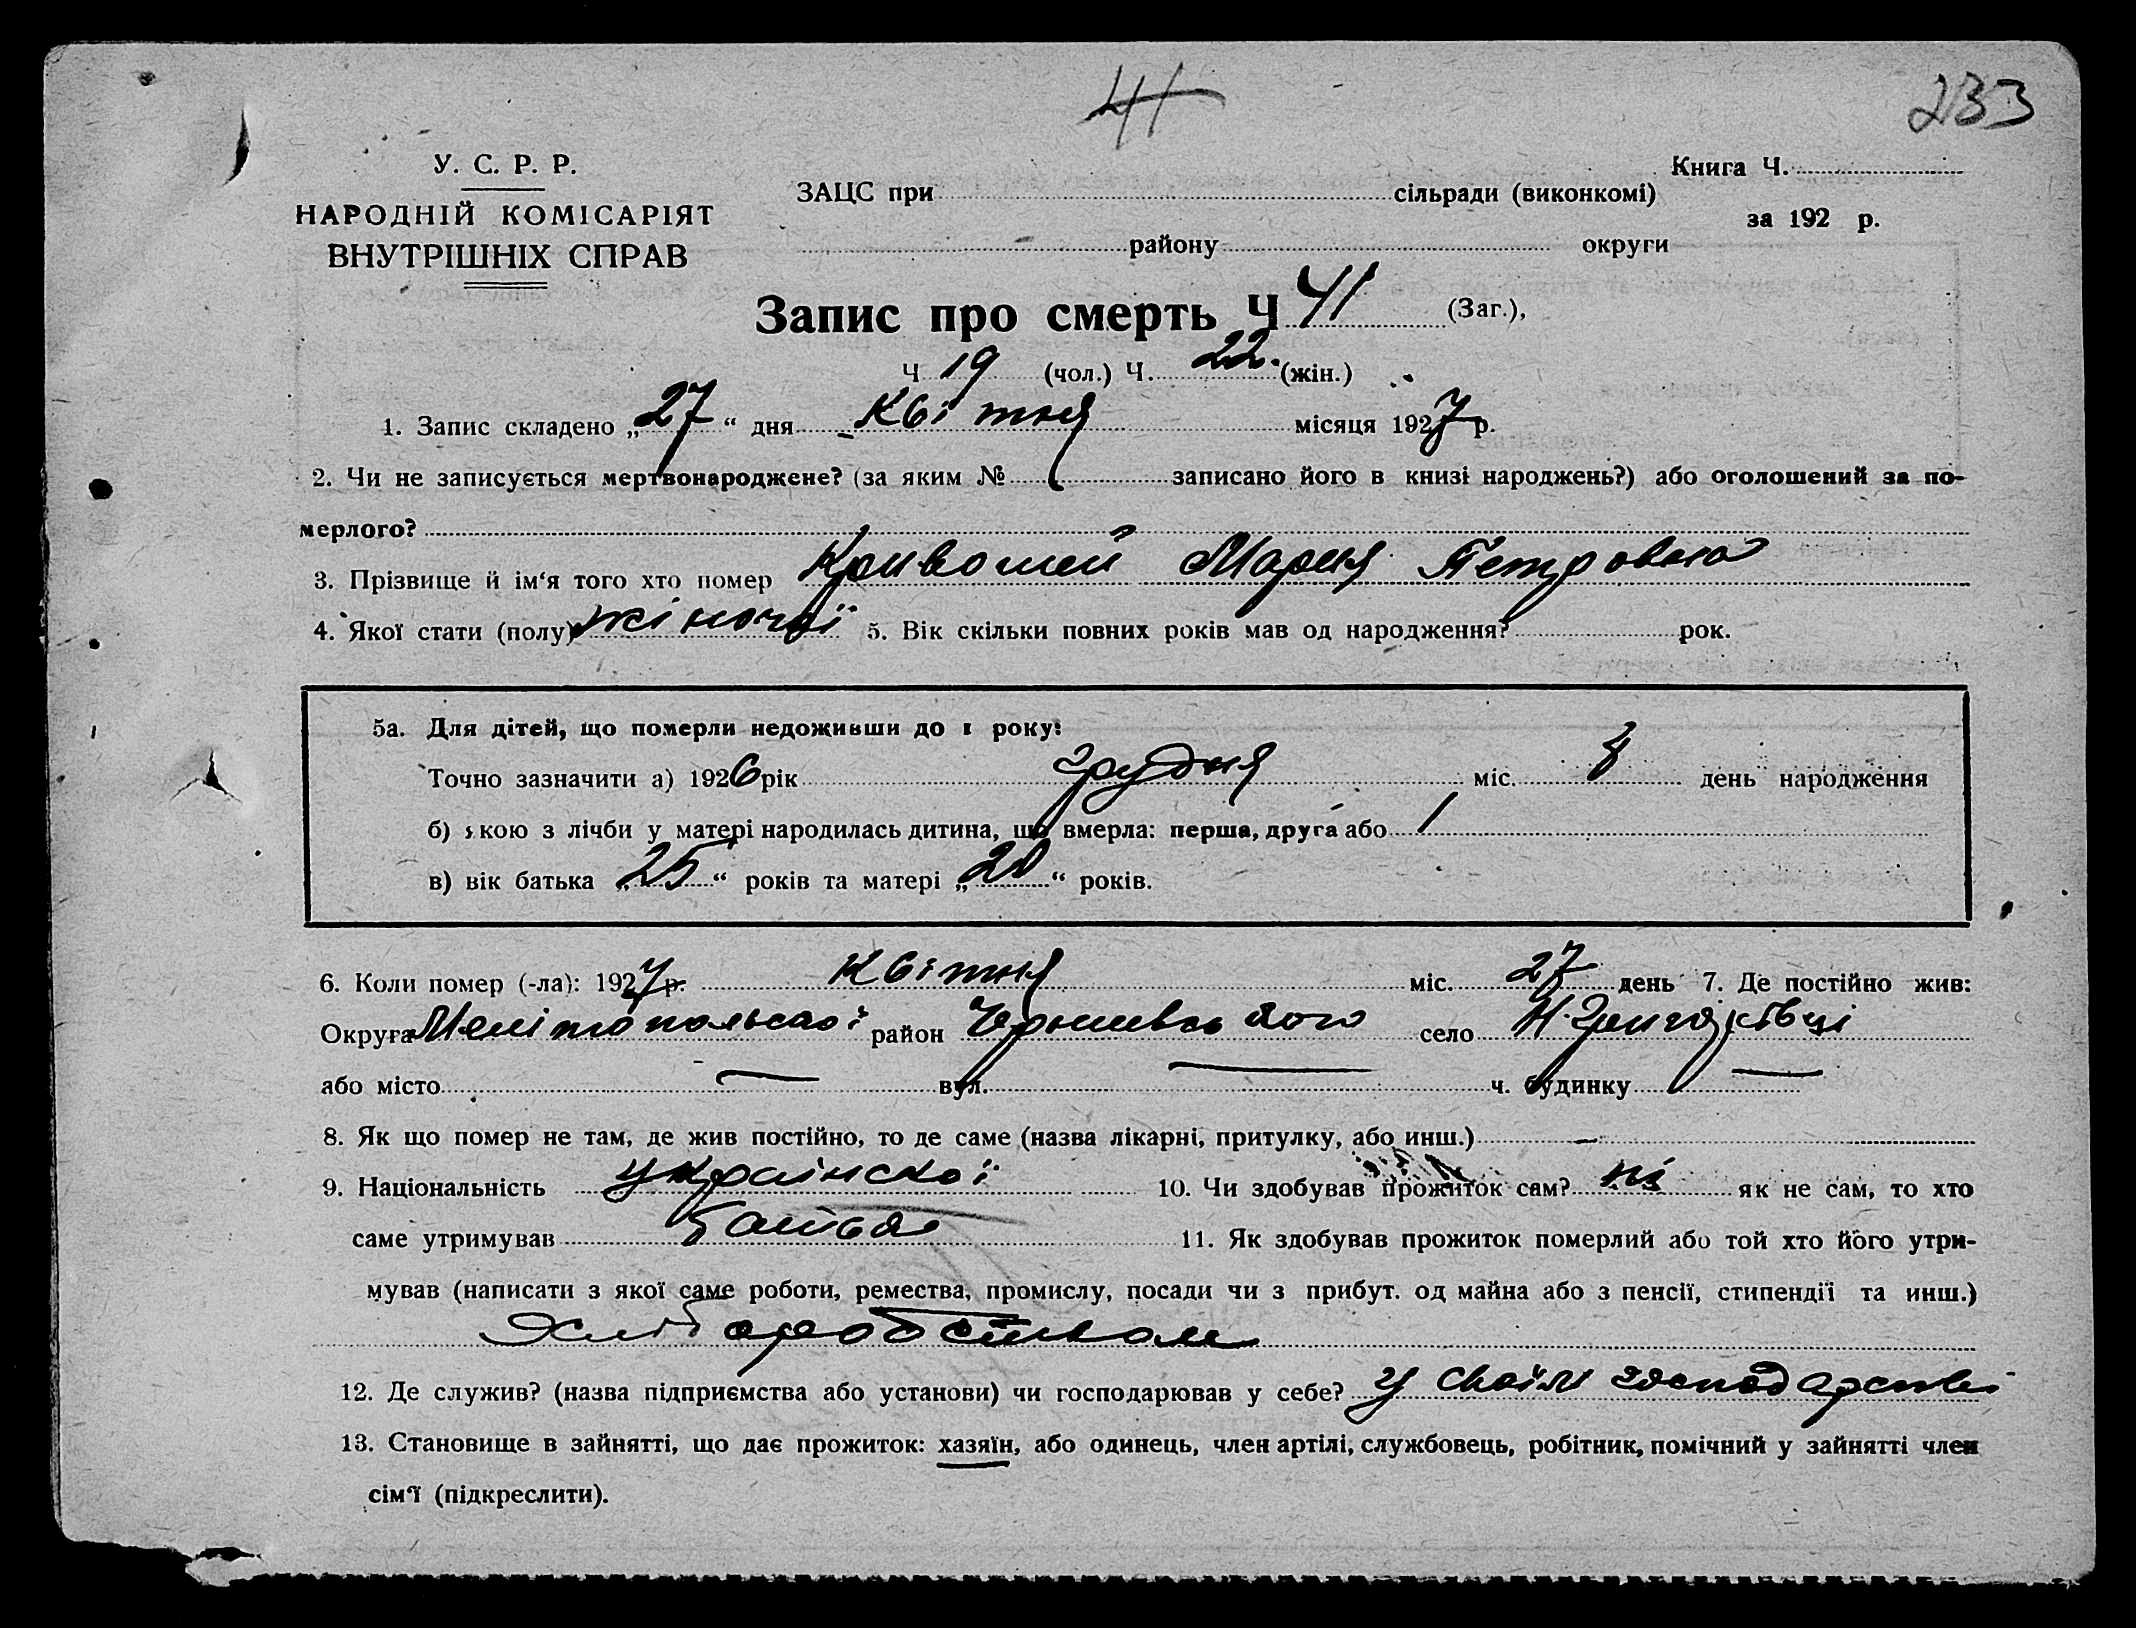 41
233
У. С. Р. Р.
НАРОДНІЙ КОМІСАРІЯТ
ВНУТРІШНІХ СПРАВ
ЗАЦС при сільради (виконкомі)
Книга Ч.
за 192 р.
району округи
Запис про смерть Ч 41 (Заг.),
Ч 19 (чол.) Ч. 22. (жін.)
1. Запис складено „27“ дня Квітня місяця 1927 р.
2. Чи не записується мертвонароджене? (за яким № записано його в книзі народжень?) або оголошений за по-
мерлого?
3. Прізвище й ім‘я того хто помер Кривошей Мария Петровна
4. Якої стати (полу) жіночої 5. Вік скільки повних років мав од народження? рок.
5а. Для дітей, що померли недоживши до 1 року:
Точно зазначити а) 1926 рік грудня міс. 8 день народження
б) якою з лічби у матері народилась дитина, що вмерла: перша, друга або 1
в) вік батька „25“ років та матері „20“ років.
6. Коли помер (-ла): 1927 р. Квітня міс. 27 день 7. Де постійно жив:
Округа Мелітопольскої район село
або місто — вул. — ч. будинку —
8. Як що помер не там, де жив постійно, то де саме (назва лікарні, притулку, або инш.) —
9. Національність українскої 10. Чи здобував прожиток сам? ні як не сам, то хто
саме утримував батько 11. Як здобував прожиток померлий або той хто його утри-
мував (написати з якої саме роботи, ремества, промислу, посади чи з прибут. од майна або з пенсії, стипендії та инш.)
Хліборобством
12. Де служив? (назва підприємства або установи) чи господарював у себе? у своїм господарстві
13. Становище в зайнятті, що дає прожиток: хазяїн, або одинець, член артілі, службовець, робітник, помічний у зайнятті член
сім‘ї (підкреслити).